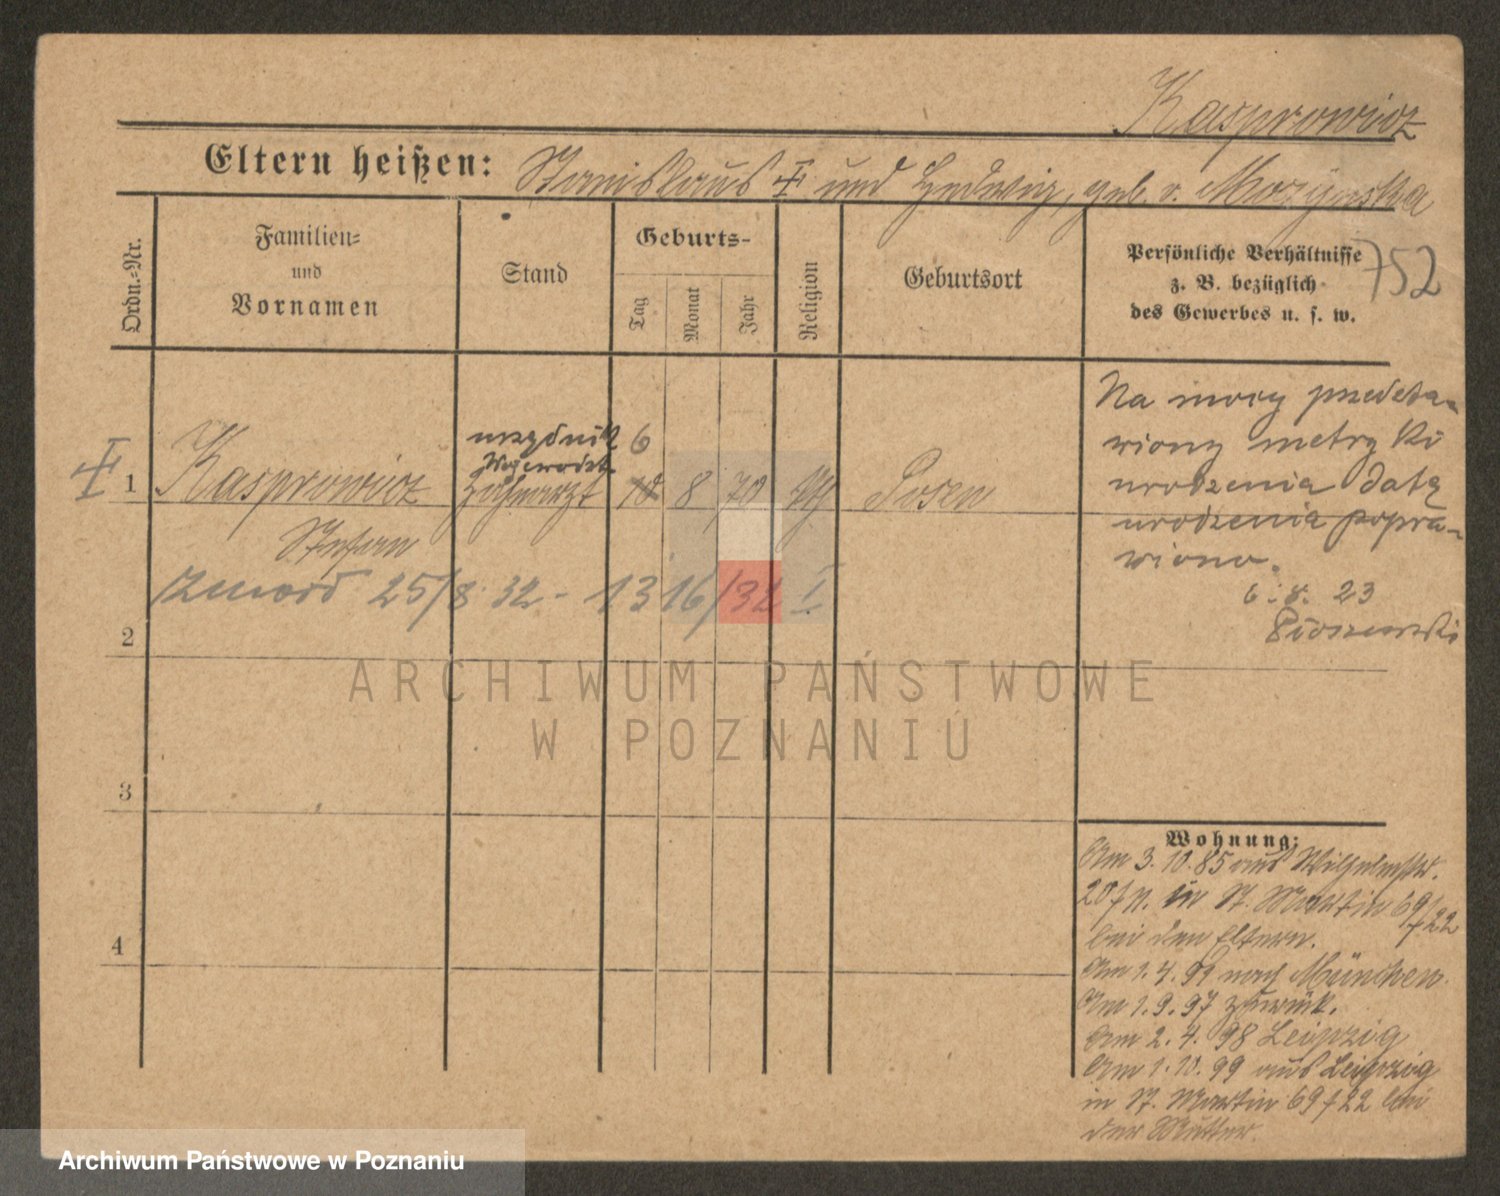 Kasprowicz
Eltern heißen: Stanislaus † und Hedwig, geb. v. Moszyńska
Ordn.-Nr.
Familien-
und
Vornamen
Stand
Geburts-
Tag
Monat
Jahr
Religion
Geburtsort
Persönliche Verhältnisse
z. B. bezüglich
des Gewerbes u. s. w.
752
1
Kasprowicz
Stefan
urzędnik
Wojewodztw
Zahnarzt
6
10 8 70
Posen
zmarł 25/8 32 - 1316/32
Na mocy przedsta-
wiony metryki
urodzenia datę
urodzenia popra-
wiono.
6. 8. 23
2
3
4
Wohnung:
Am 3. 10. 85 aus Wilhelmstr.
20 in St. Martin 69/22
bei den Eltern.
Am 1. 4. 91 nach München
Am 1. 9. 97 zurück.
Am 2. 4. 98 Leipzig
Am 1. 10. 99 aus Leipzig
in St. Martin 69/22 bei
der Mutter.
ARCHIWUM PAŃSTWOWE
W POZNANIU
Archiwum Państwowe w Poznaniu